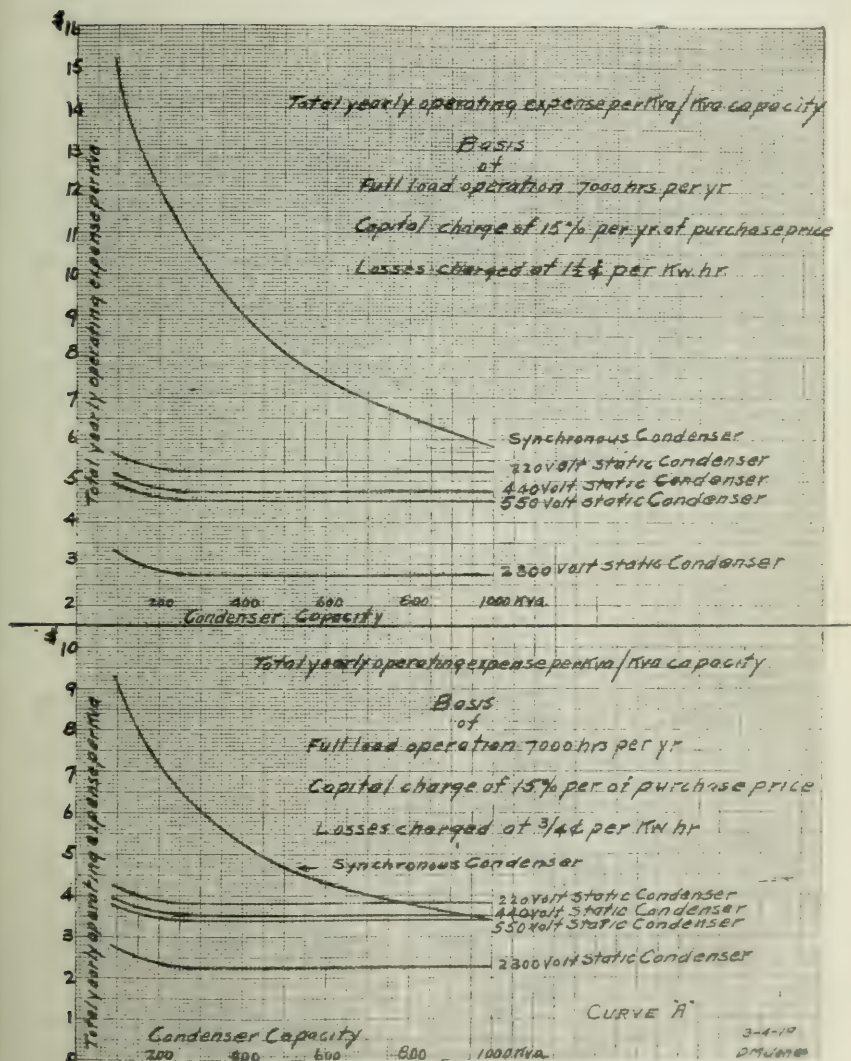 $16
15
14
13
12
11
10
9
8
7
6
5
4
3
2
Total yearly operating expense per Kva
Total yearly operating expense per Kva/Kva capacity
Basis
of
Full load operation 7000 hrs per yr
Capital charge of 15% per yr. of purchase price
Losses charged at 1½ ¢ per Kw. hr.
Synchronous Condenser
220 Volt Static Condenser
440 Volt Static Condenser
550 Volt Static Condenser
2300 Volt Static Condenser
200 400 600 800 1000 Kva.
Condenser Capacity
$10
9
8
7
6
5
4
3
2
1
0
Total yearly operating expense, per Kva
Total yearly operating expense per Kva/Kva capacity
Basis
of
Full load operation 7000 hrs per yr
Capital charge of 15% per of purchase price
Losses charged at 3/4¢ per Kw hr
Synchronous Condenser
220 Volt Static Condenser
440 Volt Static Condenser
550 Volt Static Condenser
2300 Volt Static Condenser
CURVE "A"
Condenser Capacity
200 400 600 800 1000 Kva
3-4-19
DM Jones